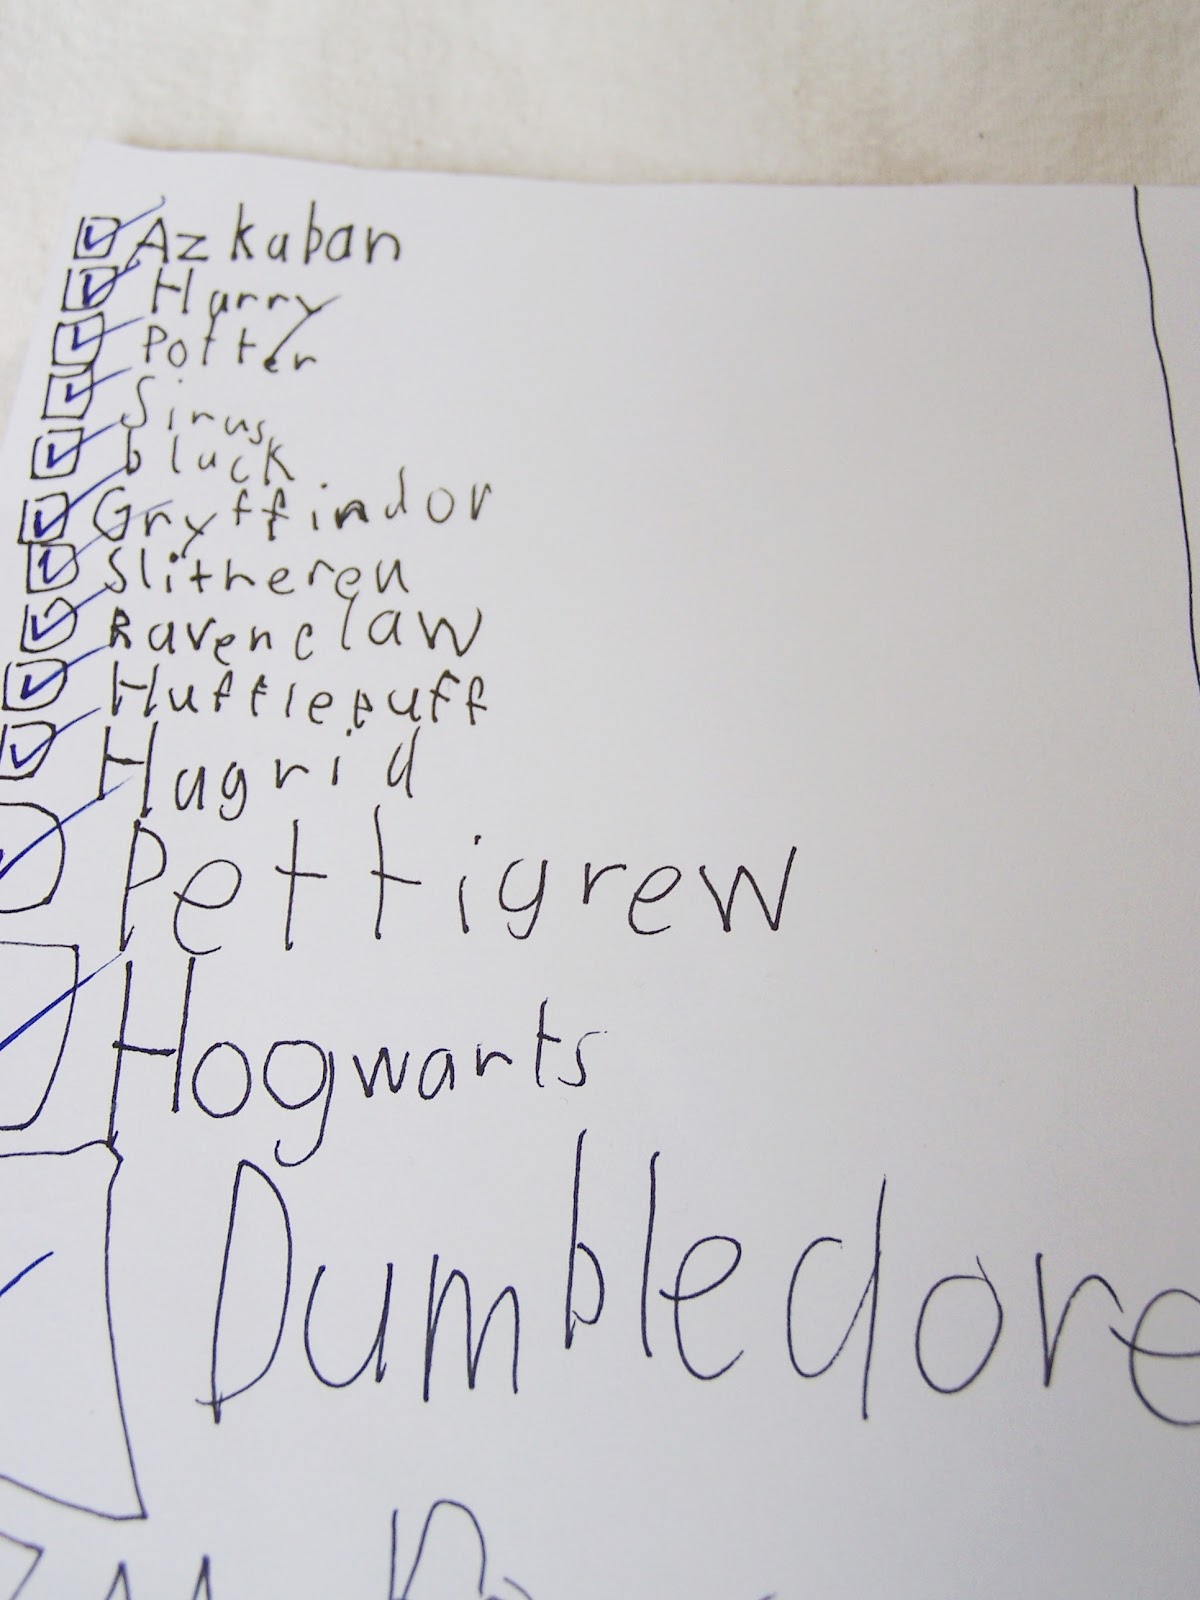 Azkaban
Harry
Potter
Sirus
black
Gryffindor
Slithereu
Ravenclaw
Hufflepuff
Hagrid
Pettigrew
Hogwarts
Dumbledore